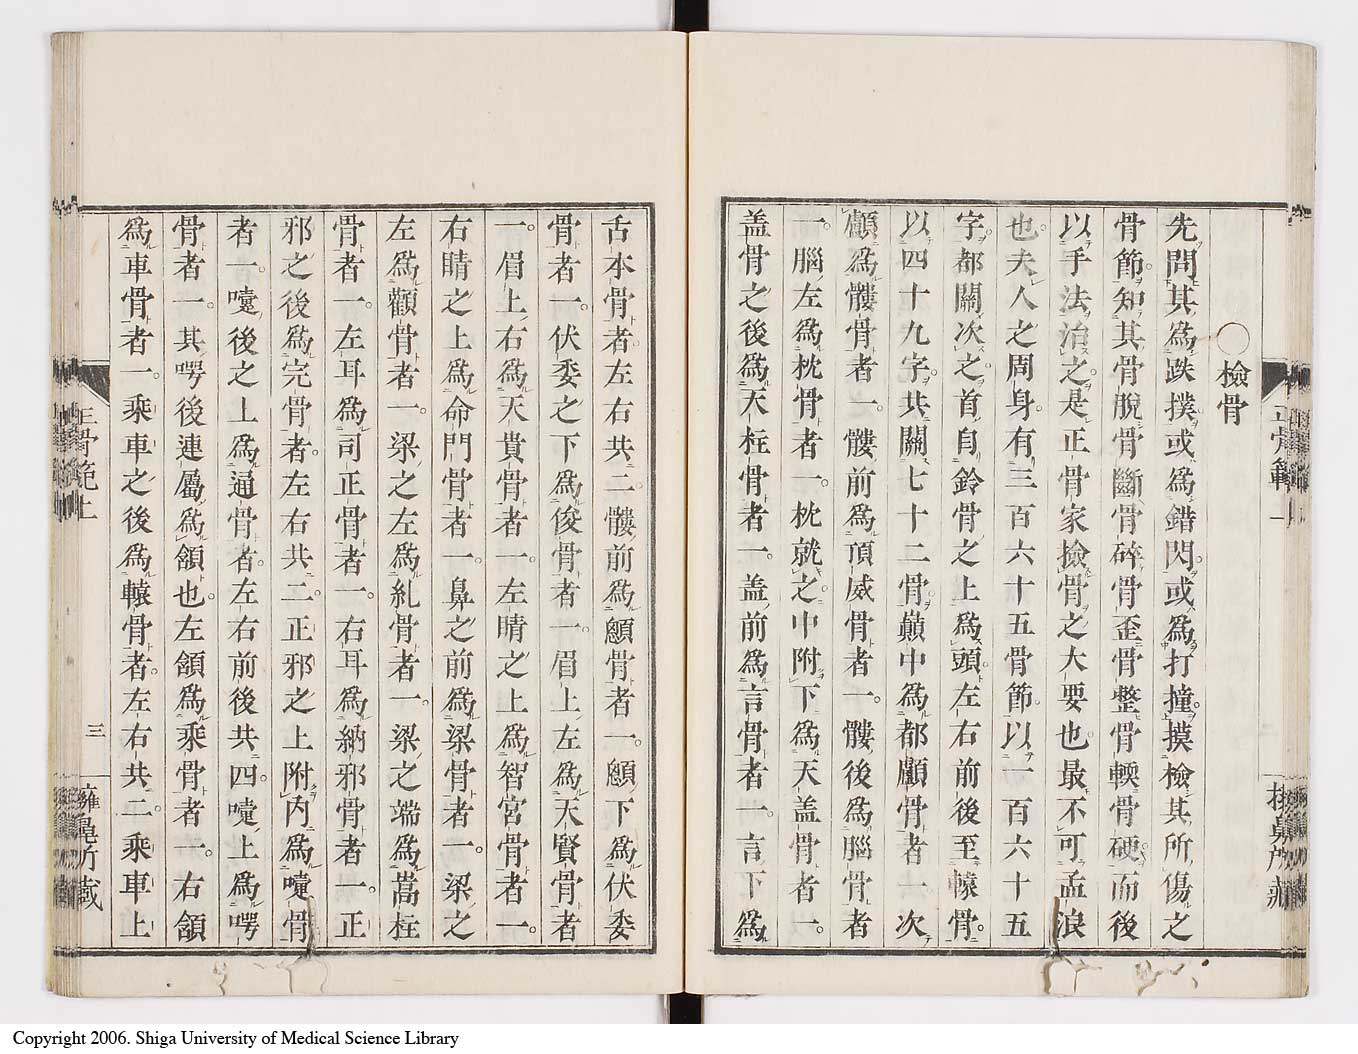 ○檢骨
先問其爲跌撲或爲錯閃或爲打撞摸檢其所傷之
骨節知其骨脫骨斷骨碎骨歪骨整骨輭骨硬而後
以手法治之是正骨家撿骨之大要也最不可孟浪
也夫人之周身有三百六十五骨節以一百六十五
字都關次之首自鈴骨之上爲頭左右前後至轅骨
以四十九字共關七十二骨巔中爲都顱骨者一次
顱爲髏骨者一髏前爲頂威骨者一髏後爲腦骨者
一腦左爲枕骨者一枕就之中附下爲天盖骨者一
盖骨之後爲天柱骨者一盖前爲言骨者一言下爲
舌本骨者左右共二髏前爲顖骨者一顖下爲伏委
骨者一伏委之下爲俊骨者一眉上左爲天賢骨者
一眉上右爲天貴骨者一左睛之上爲智宮骨者一
右睛之上爲命門骨者一鼻之前爲梁骨者一梁之
左爲顴骨者一梁之左爲糺骨者一梁之端爲嵩柱
骨者一左耳爲司正骨者一右耳爲納邪骨者一正
邪之後爲完骨者左右共二正邪之上附内爲嚏骨
者一嚏後之上爲逼骨者左右前後共四嚏上爲㗁
骨者一其㗁後連屬爲頷也左頷爲乘骨者一右頷
爲車骨者一乘車之後爲轅骨者左右共二乘車上
正骨範上
三
擁鼻所藏
Copyright 2006. Shiga University of Medical Science Library